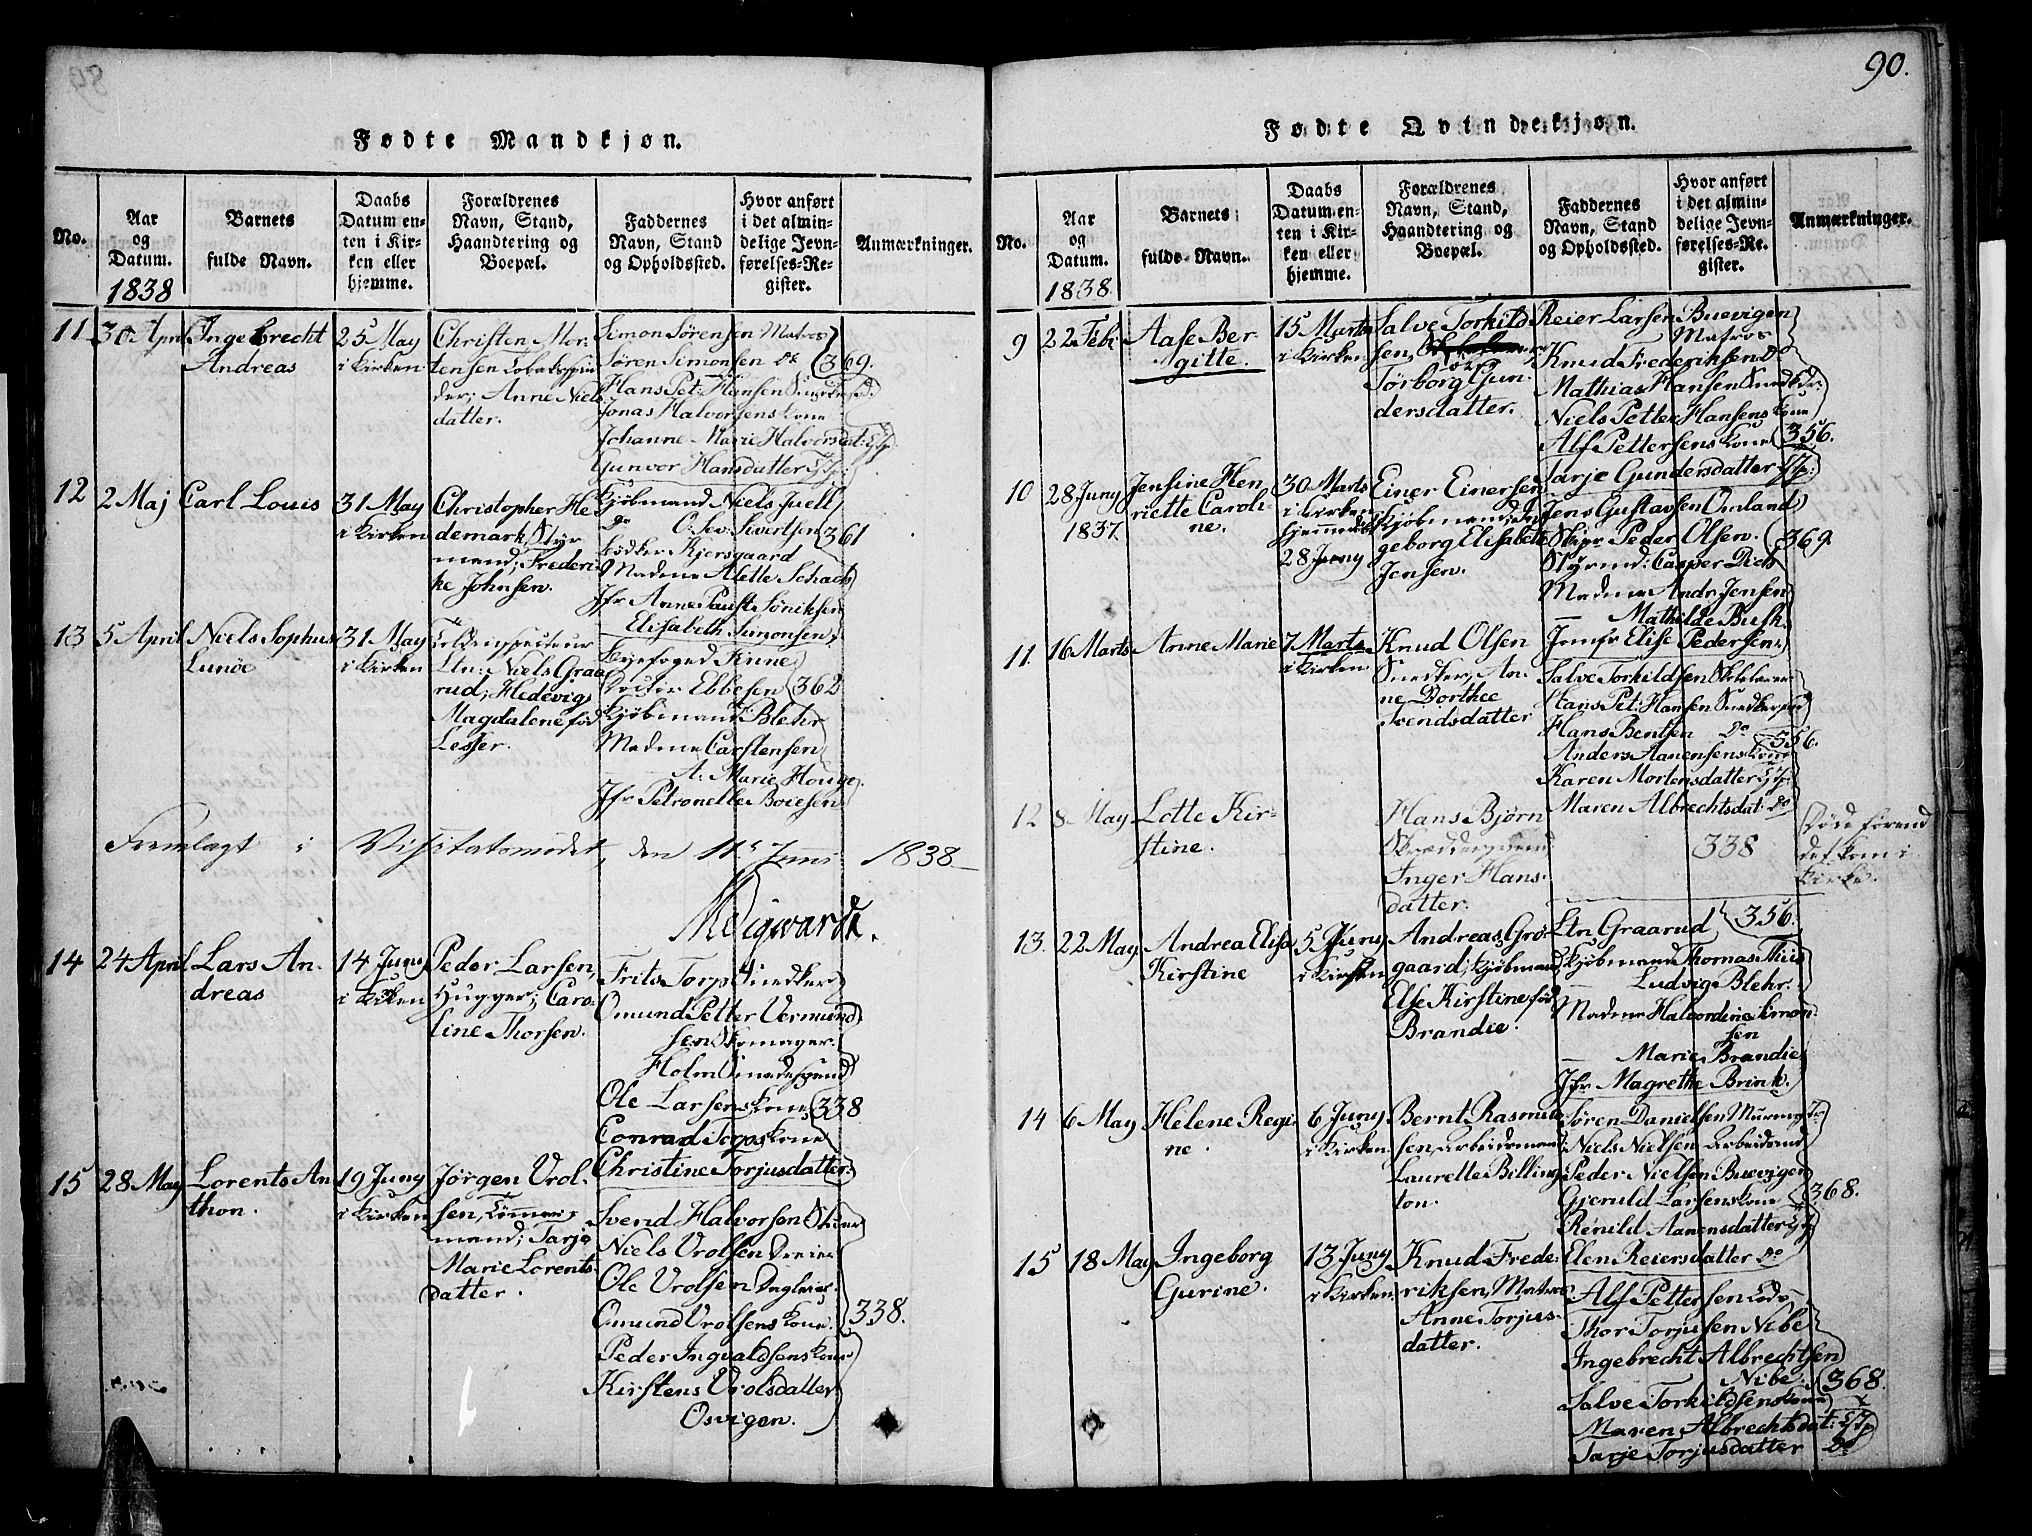 90.
Fødte Mandkjøn.
No.
Aar
og
Datum.
1838
Barnets
fulde Navn.
Daabs
Datum en-
ten i Kir-
ken eller
hjemme.
Forældrenes
Navn, Stand,
Haandtering og
Boepæl.
Faddernes
Navn, Stand
og Opholdssted.
Hvor anført
i det almin-
delige Jevn-
førelses-Re-
gister.
Anmærkninger.
11
30 April
Ingebrecht
Andreas
25 May
i Kirken
Christen Mor-
tensen
Anne Niels
datter.
Simon Sørensen Matros
Søren Simonsen Do
Hans Pet: Hansen
Jonas Halvorsens Kone
Johanne Marie Halvorsdat:
Gunvor Hansdatter
369.
12
2 Maj
Carl Louis
31 May
i Kirken
Christopher He
demark Styr
mand; Frederi-
ke Johnsen.
Kjøbmand Niels Juell
Do O. Sev: Sivertsen
Kjersgaard
Madme Alette Schach
Jfr Anne Paust Søniksen
Elisabeth Simonsen
361
13
5 April
Niels Sophus
Lunøe
31 May
i Kirken
Ltn: Niels Graa
rud; Hedevig
Magdalene fød
Lesser.
Byefoged Finne
Ebbesen
Kjøbmand Blehr
Madme Carstensen
A: Marie Houge
Jfr Petronelle Boiesen
362
Fremlagt i Visitatsmødet, den 11te Juni 1838
14
24 April
Lars An-
dreas
14 Juny
i Kirken
Peder Larsen,
Hugger; Caro-
line Thorsen.
Frits Torp Snedker
Omund Petter Vermund
sen Skomager.
Holm Smedesvend
Ole Larsens Kone
Conrad Torps Kone
Christine Torjusdatter
338
15
28 May
Lorents An
thon.
19 Juny
i Kirken
Jörgen Vrol-
sen, Tömmer
mand; Tarje
Marie Lorents
datter.
Svend Halvorsen
Niels Vrolsen Dreier
Ole Vrolsen
Omund Vrolsens Kone.
Peder Ingvaldsens Kone
Kirstens Vrolsdatter
Osvigen.
338.
Fødte Qvindekjøn.
No.
Aar
og
Datum.
1838.
Barnets
fulde Navn.
Daabs
Datum en-
ten i Kir-
ken eller
hjemme.
Forældrenes
Navn, Stand,
Haandtering og
Boepæl.
Faddernes
Navn, Stand
og Opholdssted.
Hvor anført
i det almin-
delige Jevn-
førelses-Re-
gister.
Anmærkninger.
9
22 Feb:
Aase Ber-
gitte.
15 Marts
i Kirken
Salve Torkild
sen,
Törborg Gun-
dersdatter.
Reier Larsen Buevigen
Matros
Knud Frederiksen Do
Mathias Hansen
Niels Petter Hansens Kone
Alf Pettersens Kone
Tarje Gundersdatter
356.
10
28 Juny
1837.
Jensine Hen
riette Caroli-
ne.
30 Marts
i Kirken
hjemmedøbt
28 Juny
Einer Einersen
Kjøbmand; In-
geborg Elisabeth
Jensen.
Jens Gustavsen Omland
Skipr Peder Olsen.
Styrmd: Casper Diets
Madme Andr: Jensen
— Mathilde Bush.
Jomfr Elise Pedersen
369.
11.
16 Marts
Anne Marie
7 Marts
i Kirken
Knud Olsen
Snedker; An-
ne Dorthee
Svendsdatter
Salve Torkildsen
Hans Pet: Hansen
Hans Bentsen Do
Anders Aanensens Kone
Karen Mortensdatter
Maren Albrechtsdat: Do
356.
12
8 May
Lotte Kir-
stine.
Hans Björn
Skræddersvend
Inger Hans-
datter.
338
Døde førend
det kom i
Kirke.
13.
22 May.
Andrea Elisa
Kirstine
5 Juny
i Kirken
Andreas Gro-
gaard; Kjøbmand
Else Kirstine, fød
Brandie.
Ltn. Graarud
Kjøbmand Thomas This
— Ludvig Blehr.
Madme Halvordine Simon-
sen
— Marie Brandie
Jfr Magrethe Brink.
356.
14
6 May
Helene Regi-
ne.
6 Juny
i Kirken
Bernt Rasmus-
sen, Arbeidsmand
Laurette Billing-
ton.
Søren Danielsen Murmester
Niels Nielsen Arbeidsmd
Peder Nielsen Buevigen
Gjeruld Larsens Kone
Renild Aanensdatter
Elen Reiersdatter Do
368.
15
18 May
Ingeborg
Gurine.
13 Juny
i Kirken
Knud Frede-
riksen, Matros
Anne Torjus-
datter.
Alf Pettersen Lods
Thor Torjusen Nibe
Ingebrecht Albrechtsen
Nibe
Salve Torkildsens Kone
Maren Albrechtsdat:
Tarje Torjusdatter Do
368.